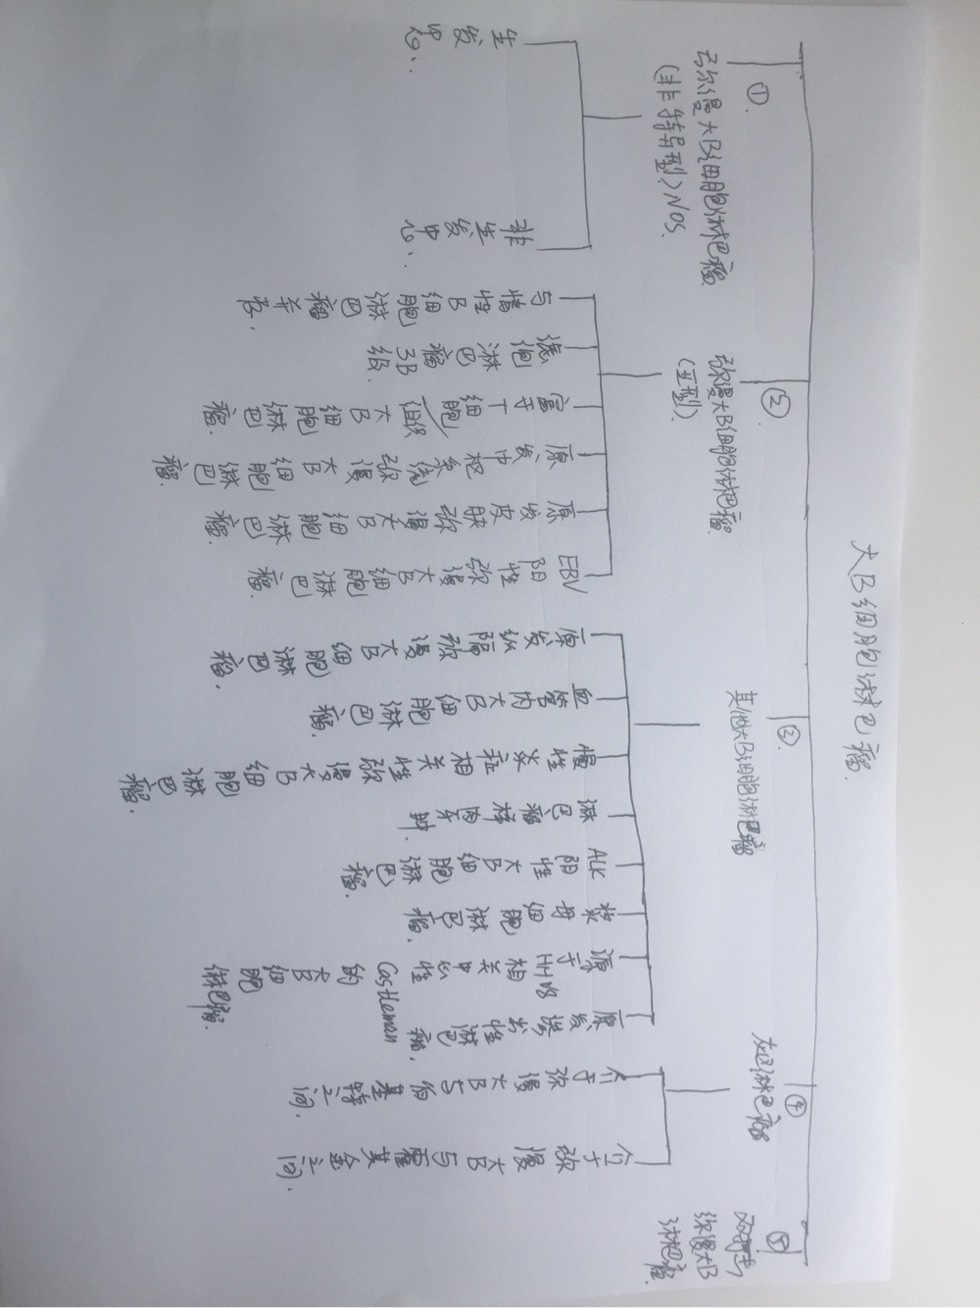 大B细胞淋巴瘤.
①
弥漫大B细胞淋巴瘤
(非特异型)NOS.
生发中心.
非生发中心.
②
弥漫大B细胞淋巴瘤
(亚型).
与惰性B细胞淋巴瘤并存.
滤泡淋巴瘤3B级.
富于T细胞/组织大B细胞淋巴瘤.
原发中枢系统弥漫大B细胞淋巴瘤.
原发皮肤弥漫大B细胞淋巴瘤.
EBV阳性弥漫大B细胞淋巴瘤.
③
其他大B细胞淋巴瘤
原发纵隔弥漫大B细胞淋巴瘤.
血管内大B细胞淋巴瘤.
慢性炎症相关性弥漫大B细胞淋巴瘤.
淋巴瘤样肉牙肿.
ALK阳性大B细胞淋巴瘤.
浆母细胞淋巴瘤.
源于HHV8相关中心性Castleman的大B细胞淋巴瘤.
原发渗出性淋巴瘤.
④
灰区淋巴瘤
介于弥漫大B与伯基特之间.
介于弥漫大B与霍其金之间.
⑤
双打击
弥漫大B
淋巴瘤.